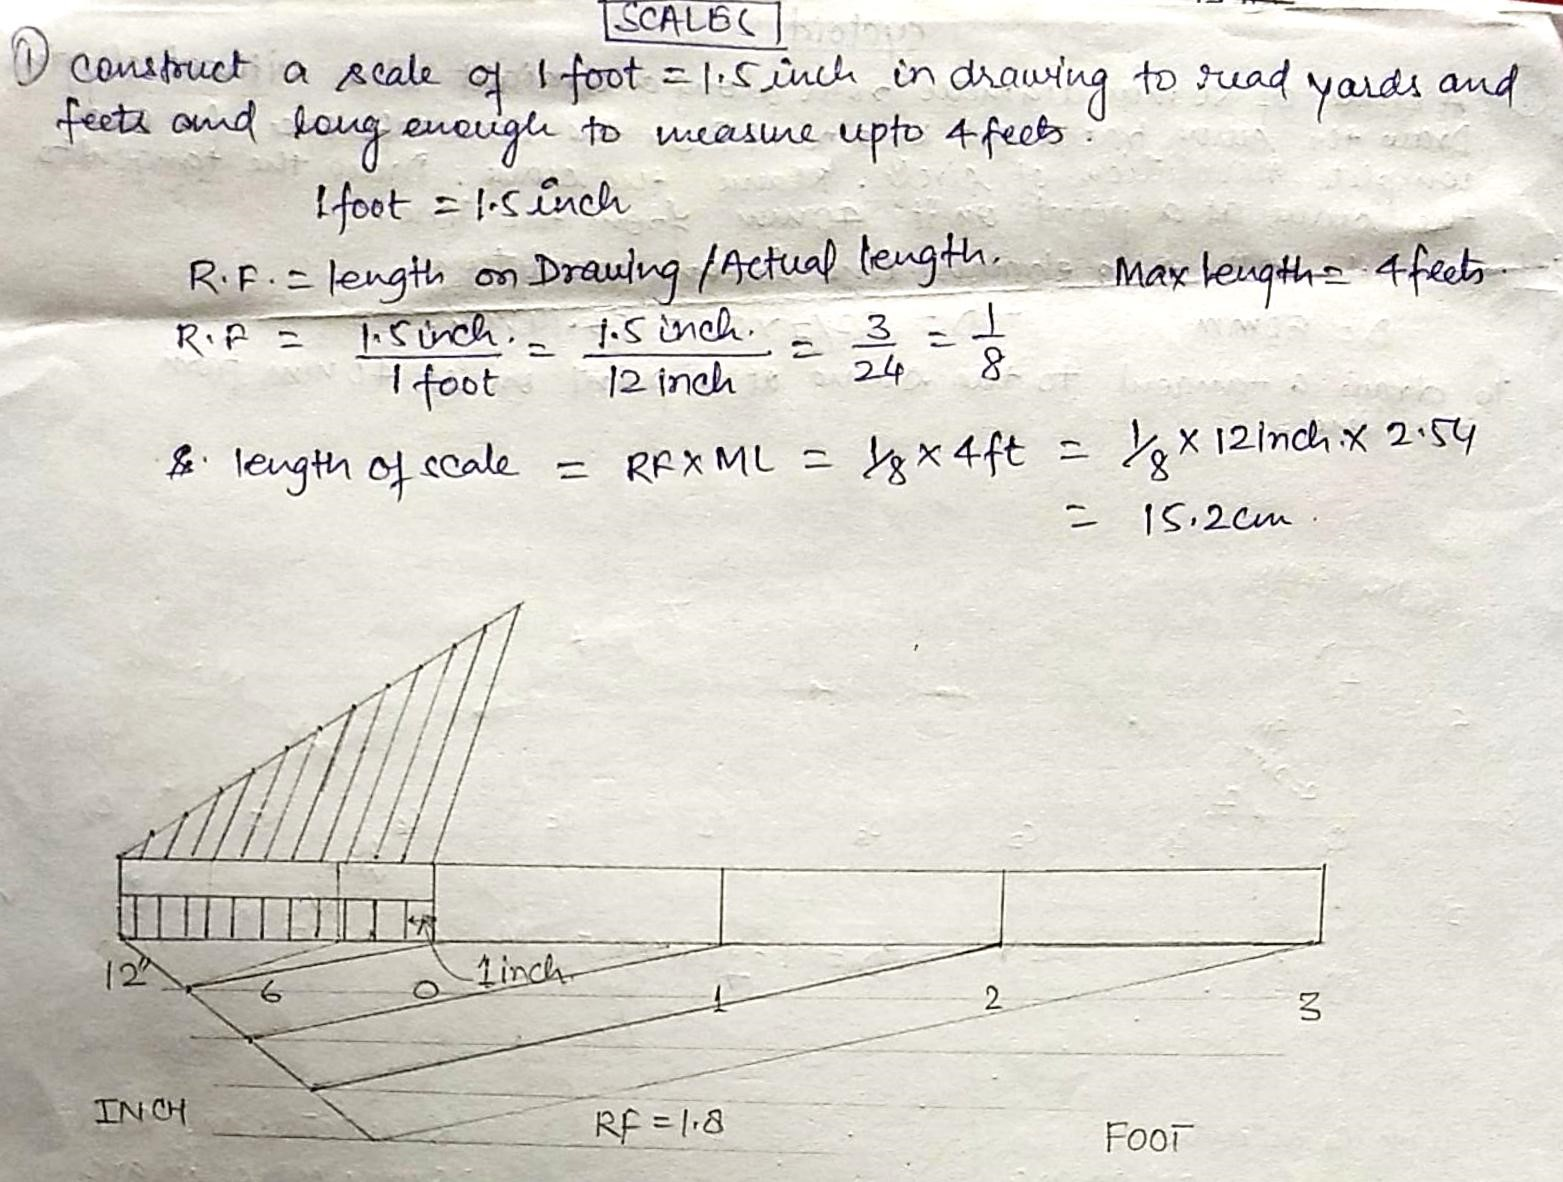 SCALES
① construct a scale of 1 foot = 1.5 inch in drawing to read yards and
feets and long enough to measure upto 4 feets.
1 foot = 1.5 inch
R.F. = length on Drawing / Actual length. Max length = 4 feets.
R.F = 1.5 inch. / 1 foot = 1.5 inch. / 12 inch = 3/24 = 1/8
length of scale = RF X ML = 1/8 x 4 ft = 1/8 x 12 inch x 2.54
= 15.2 cm.
12" 6 0 1 inch 1 2 3
INCH RF = 1.8 FOOT